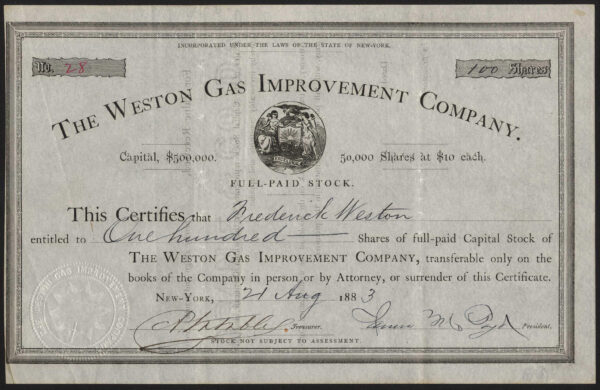 INCORPORATED UNDER THE LAWS OF THE STATE OF NEW-YORK.
No. 28
100 Shares
THE WESTON GAS IMPROVEMENT COMPANY.
Capital, $500,000.
50,000 Shares at $10 each.
EXCELSIOR
FULL-PAID STOCK.
This Certifies that Frederick Weston
entitled to One hundred Shares of full-paid Capital Stock of
THE WESTON GAS IMPROVEMENT COMPANY, transferable only on the
books of the Company in person, or by Attorney, or surrender of this Certificate.
NEW-YORK, 21 Aug 1883
Treasurer.
President.
STOCK NOT SUBJECT TO ASSESSMENT.